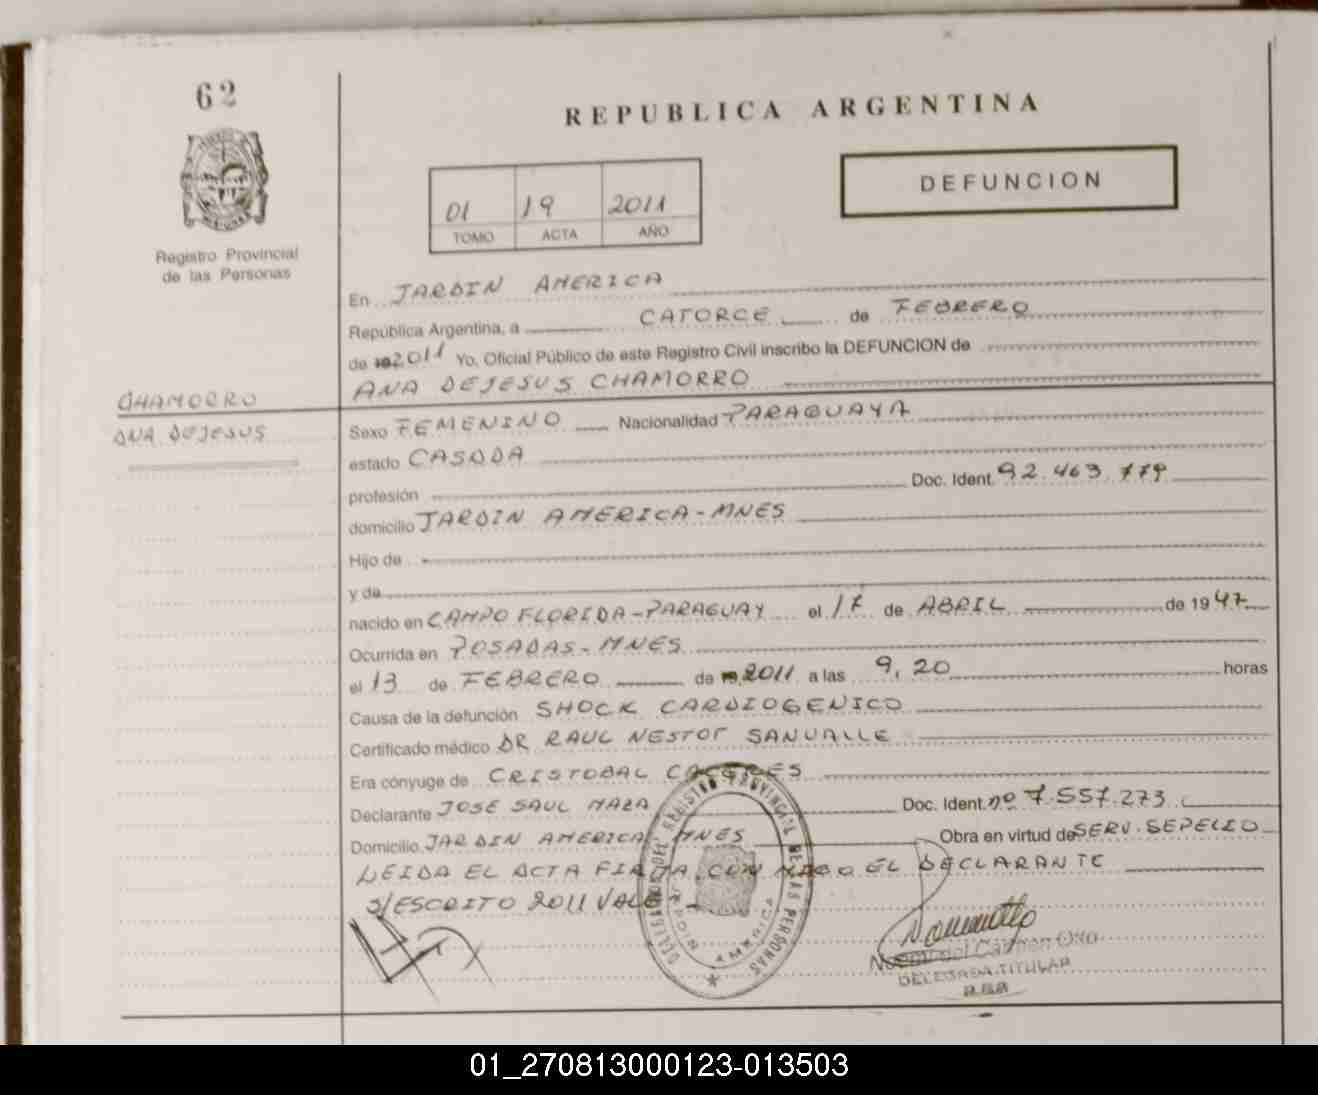 62
REPUBLICA ARGENTINA
DEFUNCION
01 19 2011
TOMO ACTA AÑO
Registro Provincial
de las Personas
En JARDIN AMERICA
República Argentina, a CATORCE de FEBRERO
de 19 2011 Yo, Oficial Público de este Registro Civil inscribo la DEFUNCION de
ANA DEJESUS CHAMORRO
CHAMORRO
ANA DEJESUS
Sexo FEMENINO Nacionalidad PARAGUAYA
estado CASADA
profesión Doc. Ident. 92.463.779
domicilio JARDIN AMERICA-MNES
Hijo de
y de
nacido en CAMPO FLORIDA-PARAGUAY el 17 de ABRIL de 1947
Ocurrida en POSADAS-MNES
el 13 de FEBRERO de 19 2011 a las 9,20 horas
Causa de la defunción SHOCK CARDIOGENICO
Certificado médico DR RAUL NESTOR SANUALLE
Era cónyuge de CRISTOBAL CACERES
Declarante JOSE SAUL MAZA Doc. Ident. nº 7.557.273
Domicilio JARDIN AMERICA MNES Obra en virtud de SERV. SEPELIO
LEIDA EL ACTA FIRMA CON MIGO EL DECLARANTE
S/ESCRITO 2011 VALE
DELEGACION DEL REGISTRO PROVINCIAL DE LAS PERSONAS
JARDIN AMERICA
del Carmen
DELEGADA TITULAR
01_270813000123-013503